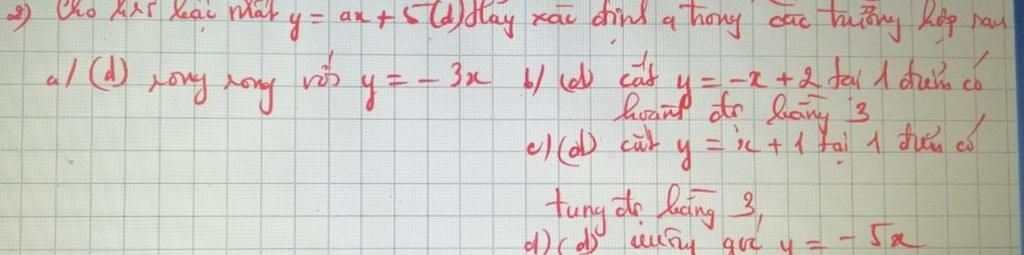 2) Cho hàm số bậc nhất y = ax + 5 (d) Hãy xác định a trong các trường hợp sau
a/ (d) song song với y = -3x b/ (d) cắt y = -x + 2 tại 1 điểm có
hoành độ bằng 3
c) (d) cắt y = x + 1 tại 1 điểm có
tung độ bằng 3,
d) (d) y = -5x